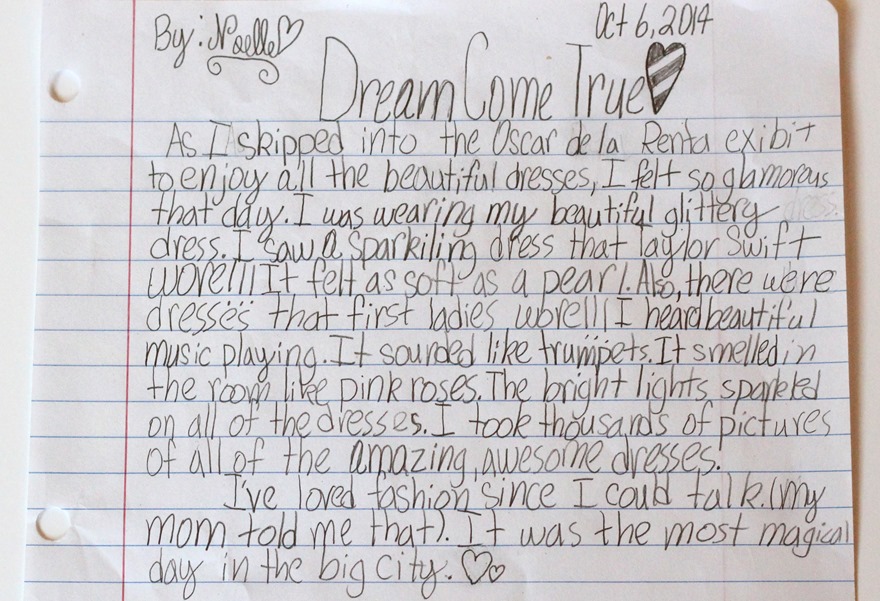 By: Noelle♡
Oct 6, 2014
Dream Come True
As I skipped into the Oscar de la Renta exibit
to enjoy all the beautiful dresses, I felt so glamorous
that day. I was wearing my beautiful glittery dress.
dress. I saw a sparkiling dress that Taylor Swift
wore!!! It felt as soft as a pearl. Also, there were
dresses that first ladies wore!!! I heard beautiful
music playing. It sounded like trumpets. It smelled in
the room like pink roses. The bright lights sparkled
on all of the dresses. I took thousands of pictures
of all of the amazing, awesome dresses.
I've loved fashion since I could talk. (my
mom told me that). It was the most magical
day in the big city. ♡♡